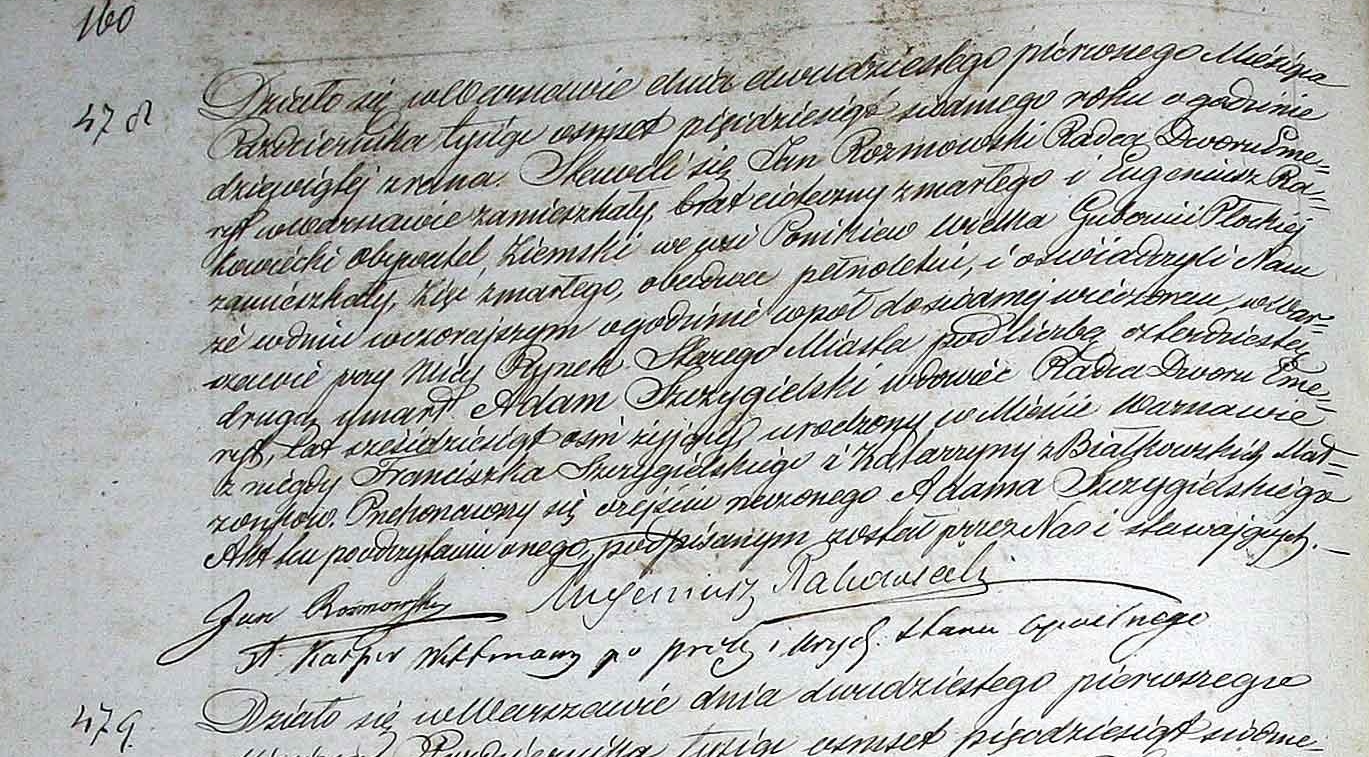 160
478
Działo się w Warszawie dnia dwudziestego pierwszego Miesiąca
Października tysiąc osmset pięćdziesiąt siodmego roku o godzinie
dziewiątej z rana. Stawili się Jan Rozmowski Radca Dworu Eme-
ryt w Warszawie zamieszkały, brat cioteczny zmarłego i Eugeniusz Ra-
kowiecki obywatel Ziemski we wsi Ponikiew wielka Gubernii Płockiej
zamieszkały, Zięć zmarłego, obadwa pełnoletni, i oświadczyli Nam
że w dniu wczorajszym o godzinie wpół do siódmej wieczorem, w War-
szawie przy ulicy Rynek Starego Miasta pod liczbą czterdzieści
drugą, umarł Adam Szczygielski wdowiec Radca Dworu Eme-
ryt, lat sześćdziesiąt ośm żyjący, urodzony w Mieście Warszawie
z niegdy Franciszka Szczygielskiego i Katarzyny z Białkowskich Mał-
żonków. Przekonawszy się o zejściu rzeczonego Adama Szczygielskiego
Akt ten po odczytaniu onego, podpisanym został przez Nas i stawających. —
Jan Rozmowski Eugeniusz Rakowiecki
Kasper Wittmann po prob i Urzęd. Stanu Cywilnego
479.
Działo się w Warszawie dnia dwudziestego pierwszego
Miesiąca Października tysiąc osmset pięćdziesiąt siódme-